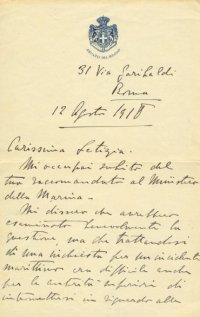 SENATO DEL REGNO
31 Via Garibaldi
Roma
12 Agosto 1918
Carissima Letizia.
Mi occupai subito del
tuo raccomandato al Ministero
della Marina.
Mi dissero che avrebbero
esaminato benevolmente la
questione, ma che trattandosi
di una inchiesta per un incidente
marittimo era difficile anche
per le autorità superiori di
intromettersi in riguardo alla